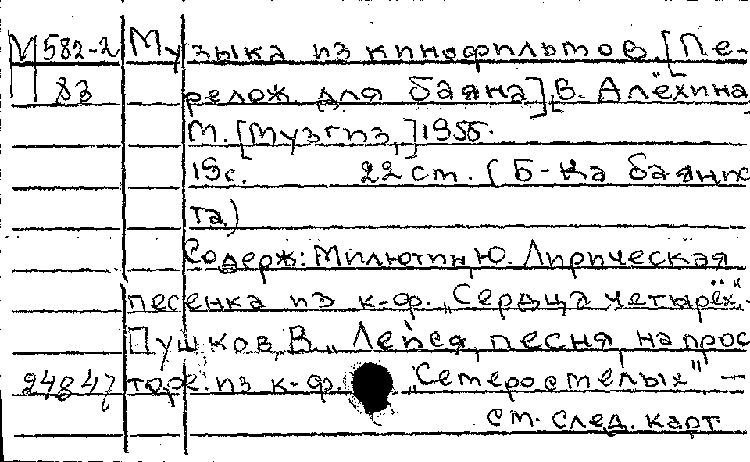 М 582-2 Музыка из кинофильмов. [Пе-
П 83 релож. для баяна] В. Алёхина
М. [Музгиз,] 1955.
19с. 22 см. (Б-ка баянис
та)
Содерж: Милютин, Ю. Лирическая
песенка из к-ф. „Сердца четырёх".
Пушков, В. „Лейся, песня, на прос
24847 торе" из к-ф. „Семеро смелых" —
см. след. карт